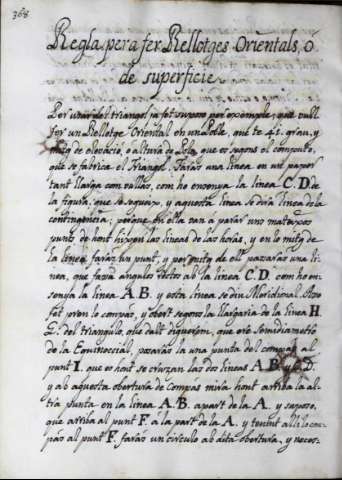 368
Regla pera fer Rellotges Orientals, ó
de superficie
Per usar del triangl ja fet suposo per exemple, que vull
fer un Rellotge Oriental en un Pole, que te 41. grau, y
mitg de elevació, o altura de Polo, que es segons el computo,
que se fabrica el Triangl. Faràs una linea en un paper
tant llarga com vullas, com ho ensenya la linea C. D. de
la figura, que se segueix, y aquesta linea se diu linea de la
contingencia; perque en ella van a parar uns mateixos
punts de hont hixen las lineas de las horas, y en lo mitg de
la linea faràs un punt, y per mitg de ell passaràs una li-
nea, que fassa anguls rectos ab la linea C. D. com ho en-
senya la linea A. B. y esta linea se diu Meridional. Axo
fet pren lo compas, y obert segons la llargaria de la linea H
G. del triangulo, que dalt diguerem, que ere semidiametro
de la Equinoccial, posaràs la una punta del compas al
punt I. que es hont se cruzan las dos lineas A B y C D.
y ab aquesta obertura de Compas mira hont arriba la al-
tra punta en la linea A. B. a part de la A. y suposo,
que arriba al punt F. a la part de la A. y tenint alli lo com-
pas al punt F. faràs un circulo ab dita obertura, y neces-